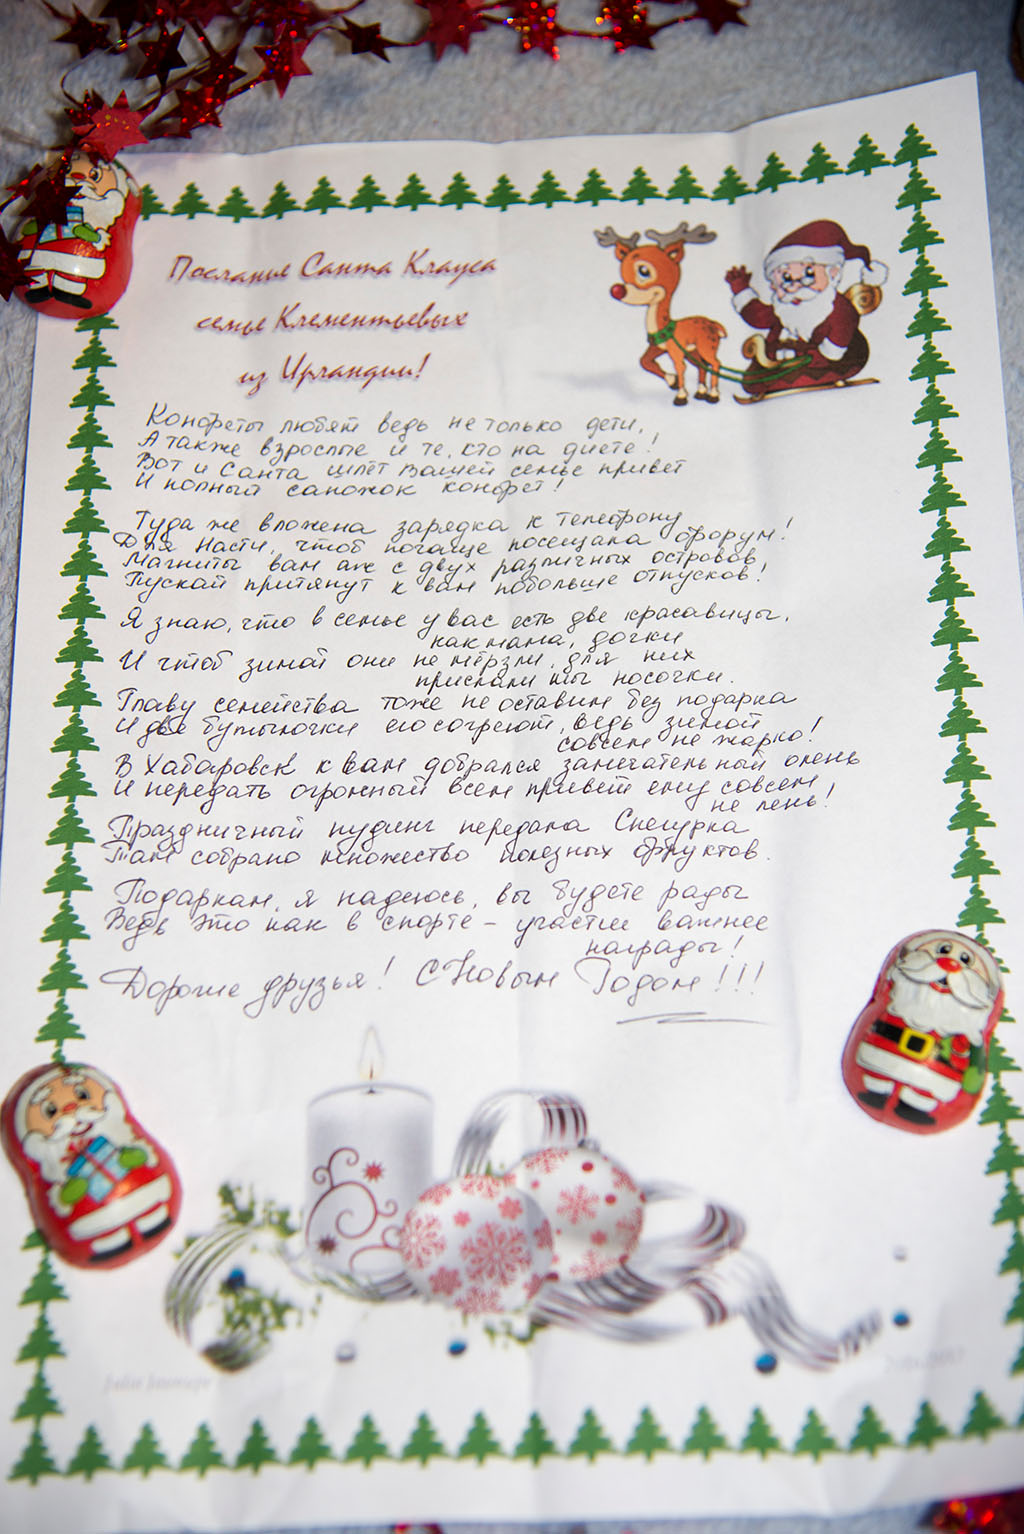 Послание Санта Клауса
семье Клементьевых
из Ирландии!
Конфеты любят ведь не только дети,
А также взрослые и те, кто на диете!
Вот и Санта шлёт Вашей семье привет
И полный сапожок конфет!
Туда же вложена зарядка к телефону
Для Насти, чтоб почаще посещала форум!
Магниты вам аж с двух различных островов,
Пускай притянут к вам побольше отпусков!
Я знаю, что в семье у вас есть две красавицы,
как мама, дочки
И чтоб зимой они не мёрзли, для них
прислали мы носочки.
Главу семейства тоже не оставим без подарка
И две бутылочки его согреют, ведь зимой
совсем не жарко!
В Хабаровск к вам добрался замечательный олень
И передать огромный всем привет ему совсем
не лень!
Праздничный пудинг передала Снегурка
Там собрано множество полезных фруктов.
Подаркам, я надеюсь, вы будете рады
Ведь это как в спорте – участие важнее
награды!
Дорогие друзья! С Новым Годом!!!